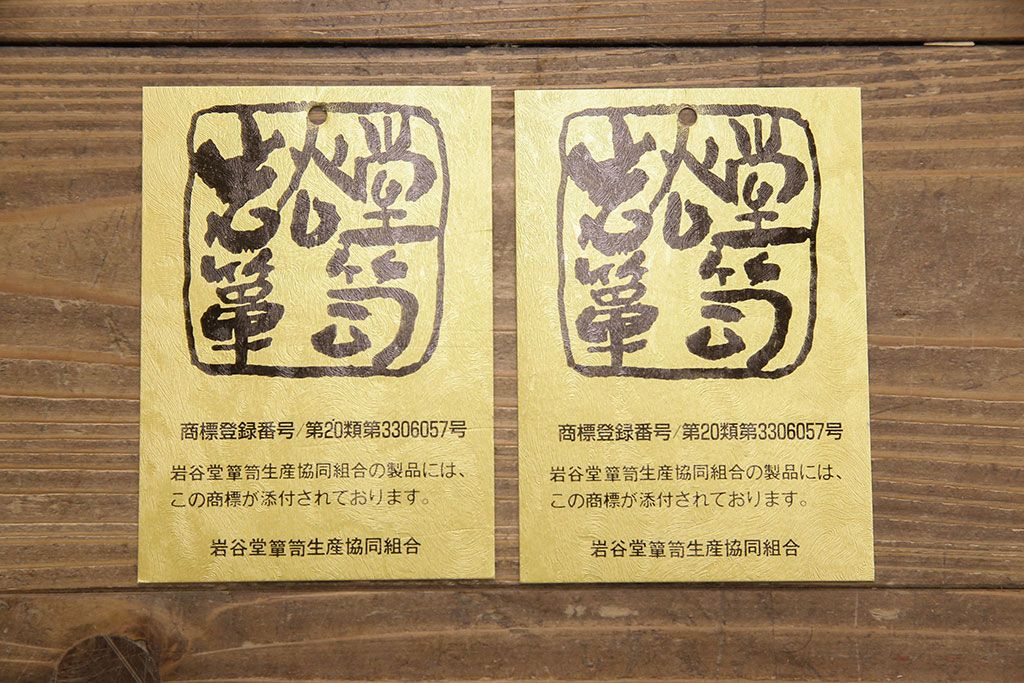 岩谷堂
簞笥
商標登録番号/第20類第3306057号
岩谷堂簞笥生産協同組合の製品には、
この商標が添付されております。
岩谷堂簞笥生産協同組合
岩谷堂
簞笥
商標登録番号/第20類第3306057号
岩谷堂簞笥生産協同組合の製品には、
この商標が添付されております。
岩谷堂簞笥生産協同組合